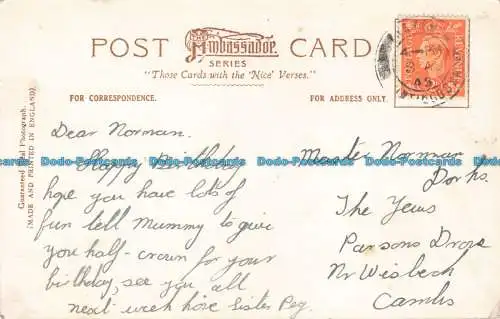 POST CARD
The Ambassador
SERIES
"Those Cards with the 'Nice' Verses."
FOR CORRESPONDENCE.
FOR ADDRESS ONLY.
Guaranteed Real Photograph.
(MADE AND PRINTED IN ENGLAND)
Dear Norman.
Happy Birthday
hope you have lots of
fun tell Mummy to give
you half-crown for your
birthday, see you all
next week love Sister Peg.
Master Norman
The Yews
Parsons Drove
Nr Wisbech
Cambs
Dodo-Postcards Dodo-Postcards Dodo-Postcards Dodo-Postcards
Dodo-Postcards Dodo-Postcards Dodo-Postcards Dodo-Postcards